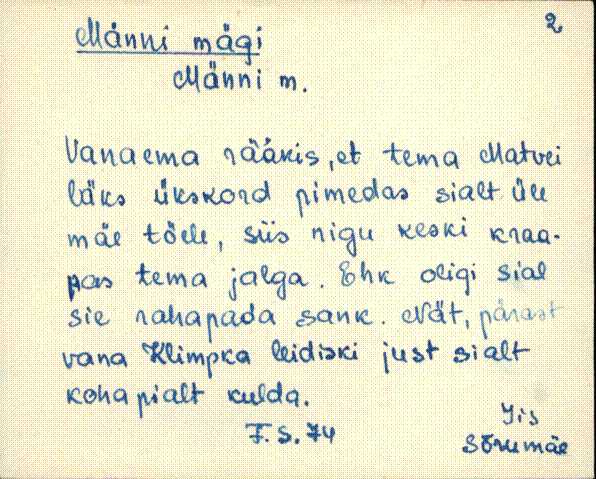 2
Männi mägi
Männi m.
Vanaema rääkis, et tema Matvei
läks ükskord pimedas sialt üle
mäe tööle, siis nigu keski kraa-
pas tema jalga. Ehk oligi sial
sie rahapada sank. Nät, pärast
vana Klimpka leidiski just sialt
koha pialt kulda.
F. S. 74
Jis
Sõrumäe